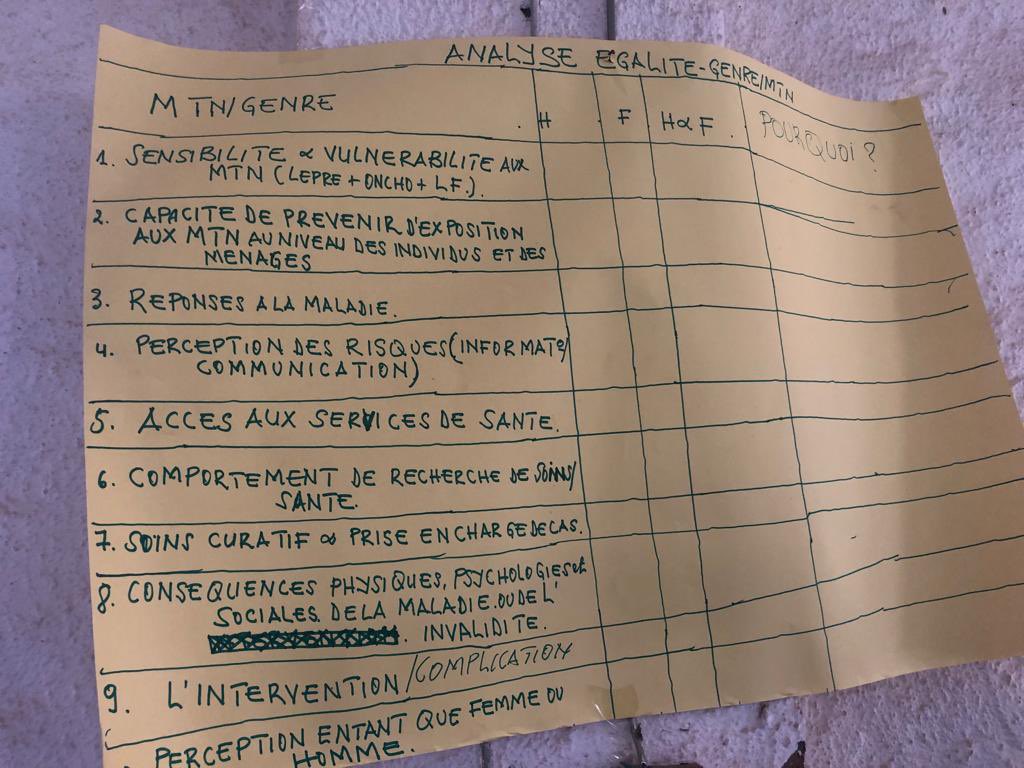 ANALYSE EGALITE-GENRE/MTN
MTN/GENRE
H
F
H & F
POURQUOI ?
1. SENSIBILITE & VULNERABILITE AUX
MTN (LEPRE + ONCHO + LF.).
2. CAPACITE DE PREVENIR D'EXPOSITION
AUX MTN AU NIVEAU DES INDIVIDUS ET DES
MENAGES
3. REPONSES A LA MALADIE.
4. PERCEPTION DES RISQUES (INFORMAT°/
COMMUNICATION)
5. ACCES AUX SERVICES DE SANTE.
6. COMPORTEMENT DE RECHERCHE DE SOINS/
SANTE.
7. SOINS CURATIF & PRISE EN CHARGE DE CAS.
8. CONSEQUENCES PHYSIQUES, PSYCHOLOGIES et
SOCIALES. DE LA MALADIE. OU DE L'
. INVALIDITE.
9. L'INTERVENTION/COMPLICATION
PERCEPTION ENTANT QUE FEMME OU
HOMME.